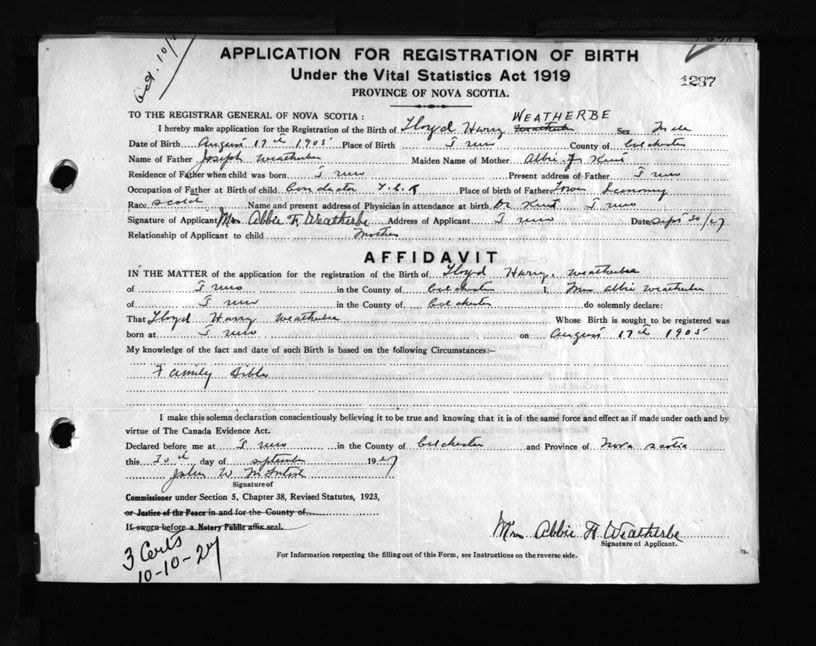 Oct. 10/
APPLICATION FOR REGISTRATION OF BIRTH
Under the Vital Statistics Act 1919
1287
PROVINCE OF NOVA SCOTIA.
TO THE REGISTRAR GENERAL OF NOVA SCOTIA: WEATHERBE
I hereby make application for the Registration of the Birth of Lloyd Harry Weatherbe Sex Male
Date of Birth August 17th 1905 Place of Birth Truro County of Colchester
Name of Father Joseph Weatherbe Maiden Name of Mother Abbie
Residence of Father when child was born Truro Present address of Father Truro
Occupation of Father at Birth of child Conductor I.C.R Place of birth of Father Lower Economy
Race Scotch Name and present address of Physician in attendance at birth Dr Kent Truro
Signature of Applicant Mrs Abbie H Weatherbe Address of Applicant Truro Date Sept 30/27
Relationship of Applicant to child Mother
AFFIDAVIT
IN THE MATTER of the application for the registration of the Birth of Lloyd Harry Weatherbe
of Truro in the County of Colchester I, Mrs Abbie Weatherbe
of Truro in the County of Colchester do solemnly declare:
That Lloyd Harry Weatherbe Whose Birth is sought to be registered was
born at Truro on August 17th 1905
My knowledge of the fact and date of such Birth is based on the following Circumstances:—
Family Bible
I make this solemn declaration conscientiously believing it to be true and knowing that it is of the same force and effect as if made under oath and by
virtue of The Canada Evidence Act.
Declared before me at Truro in the County of Colchester and Province of Nova Scotia
this 30th day of September 1927
John W McIntosh
Signature of
Commissioner under Section 5, Chapter 38, Revised Statutes, 1923,
or Justice of the Peace in and for the County of
If sworn before a Notary Public affix seal.
Mrs Abbie H Weatherbe
Signature of Applicant.
3 Certs
10-10-27
For Information respecting the filling out of this Form, see Instructions on the reverse side.